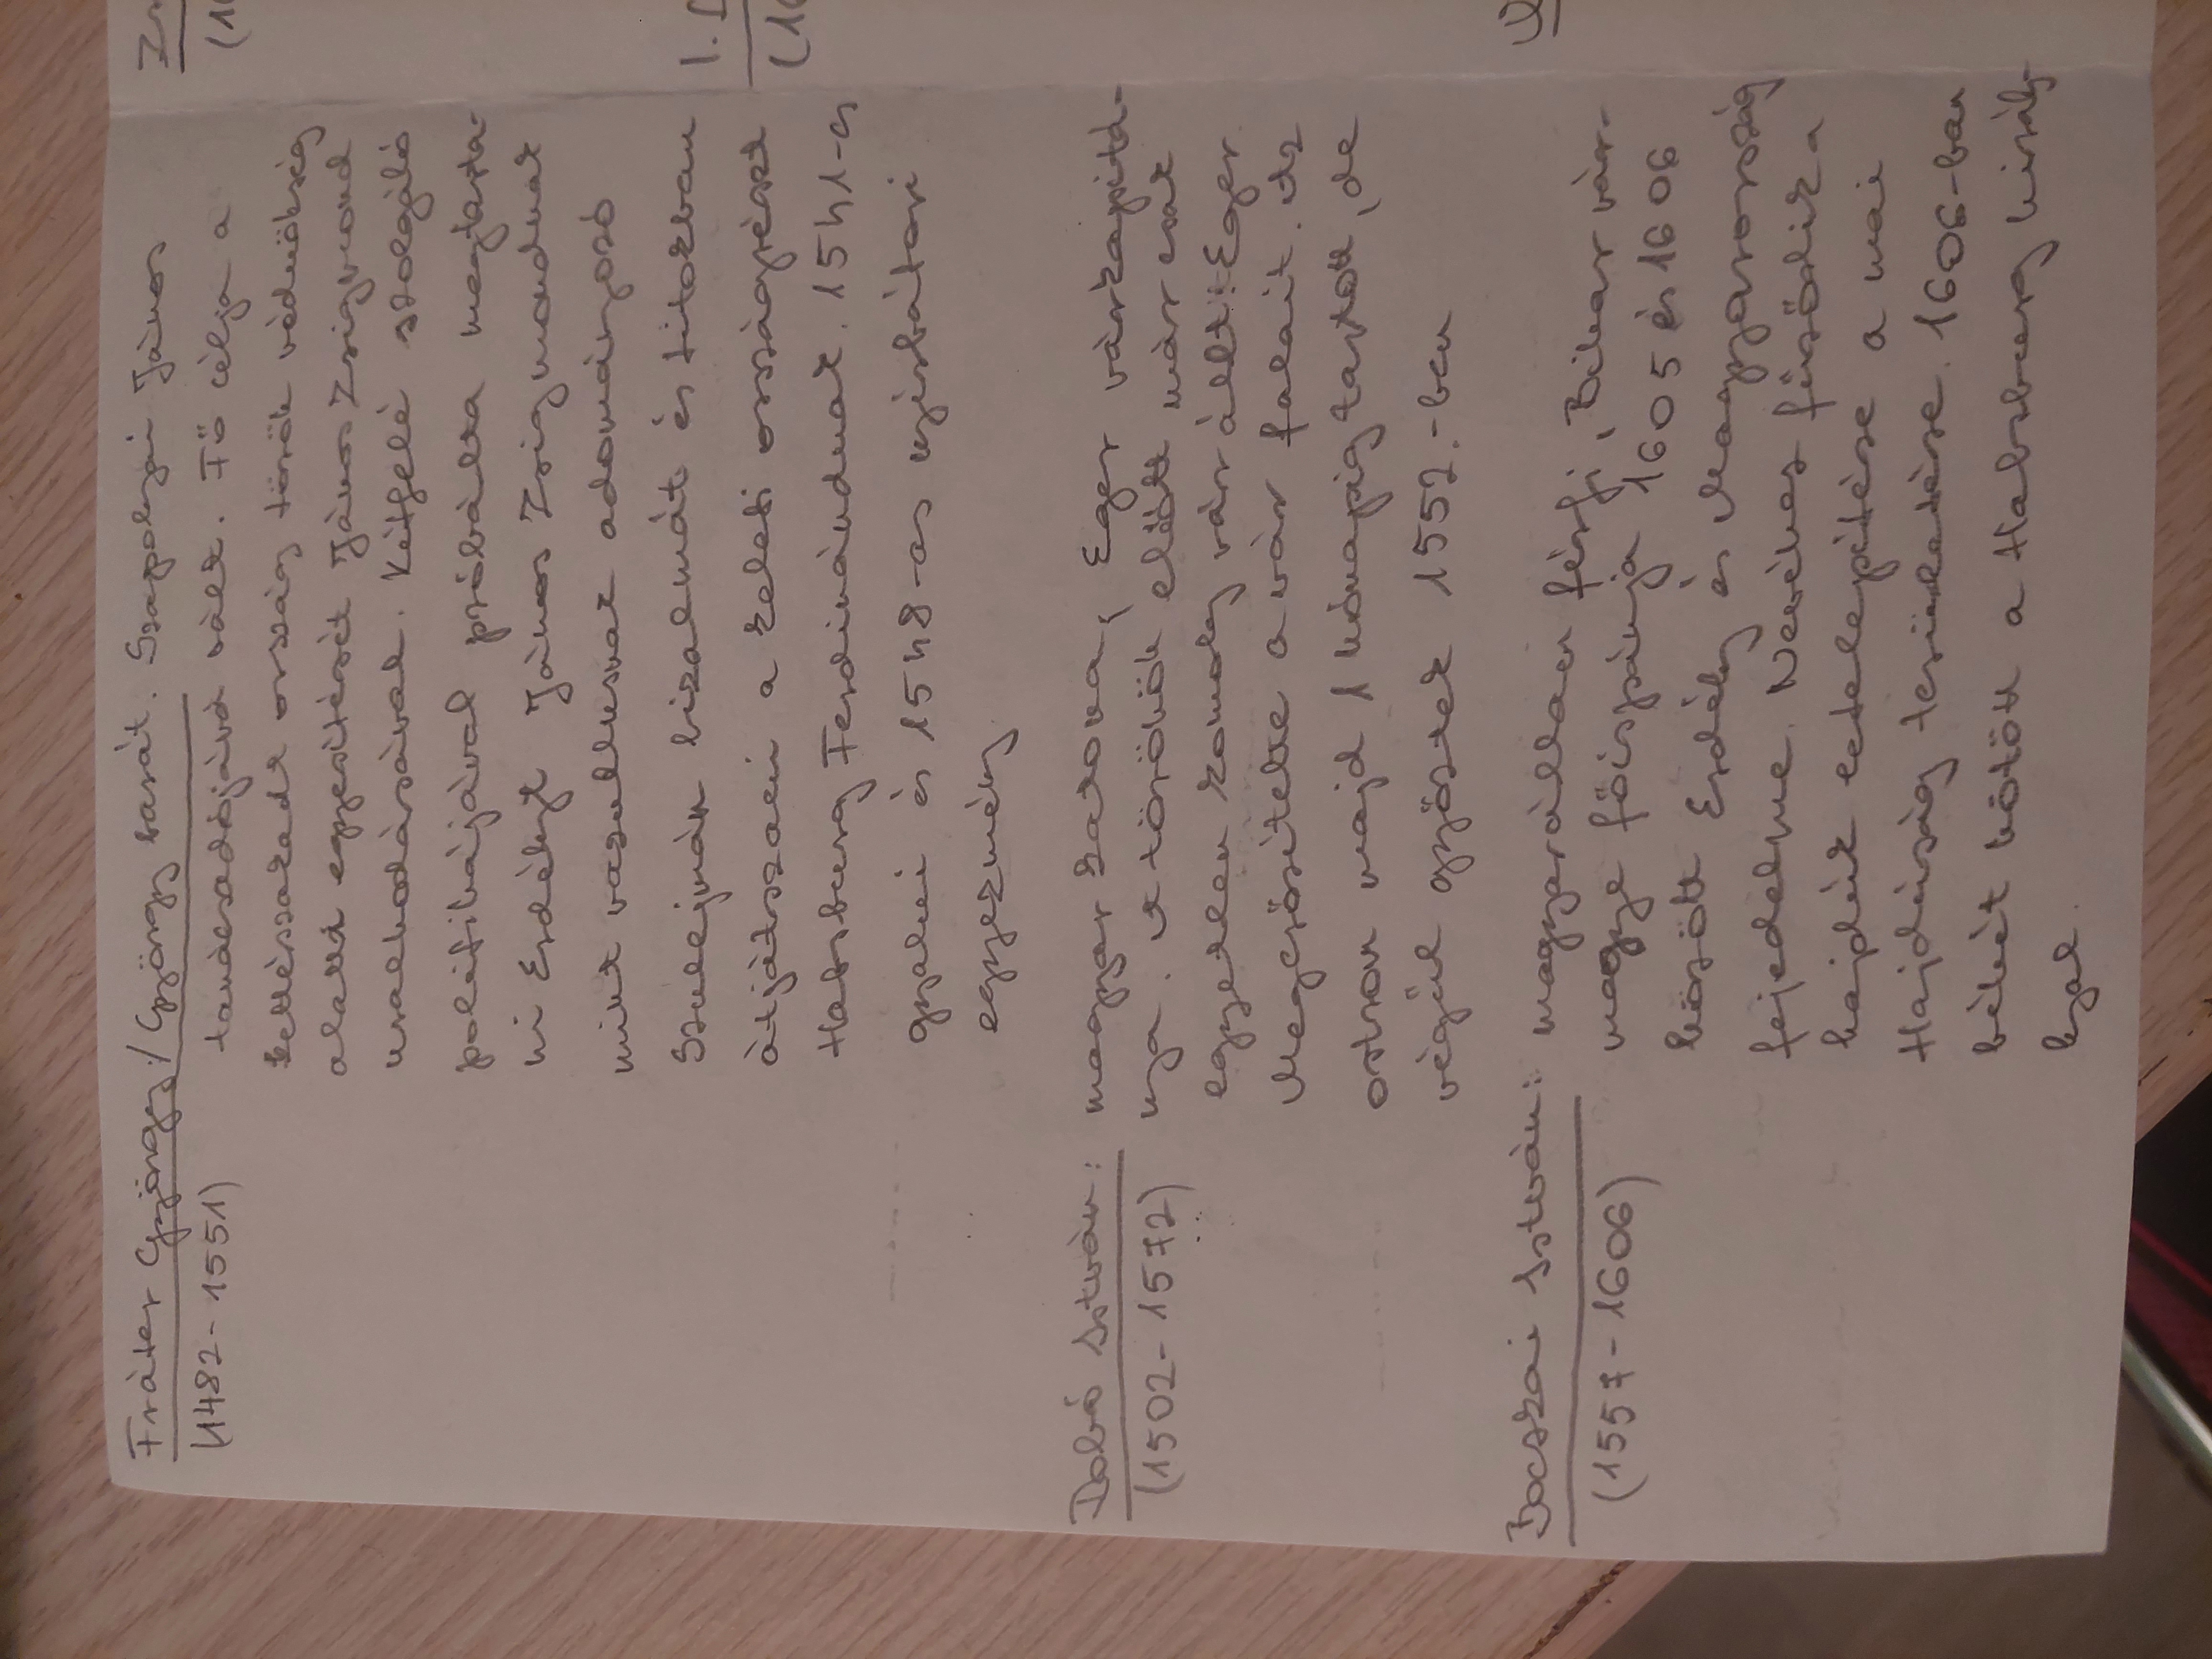 Fráter György:/György barát. Szapolyai János
(1482-1551) tanácsadójává vált. Fő célja a
kettészakadt ország török védnökség
alatti egyesítését János Zsigmond
uralkodásával. Kétfelé szolgáló
politikájával próbálta megtarta-
ni Erdélyt János Zsigmondnak
mint vazallusnak adományozó
Szulejmán bizalmát és titokban
átjátszani a keleti országrészt
Habsburg Ferdinándnak. 1541-es
gyalui és 1548-as nyírbátori
egyezmény
Dobó István: magyar katona, Eger várkapitá-
(1502-1572) nya. A törökök előtt már csak
egyetlen komoly vár állt: Eger.
Megerősítette a vár falait. Az
ostrom majd 1 hónapig tartott, de
végül győztek 1552.-ben
Bocskai István: magyarállami férfi, Bihar vár-
(1557-1606) megye főispánja 1605 és 1606
között Erdély és Magyarország
fejedelme. Nevéhez fűződik a
hajdúk letelepítése a mai
Hajdúság területére. 1606-ban
békét kötött a Habsburg király-
lyal.
Zr
(16
I. 
(16